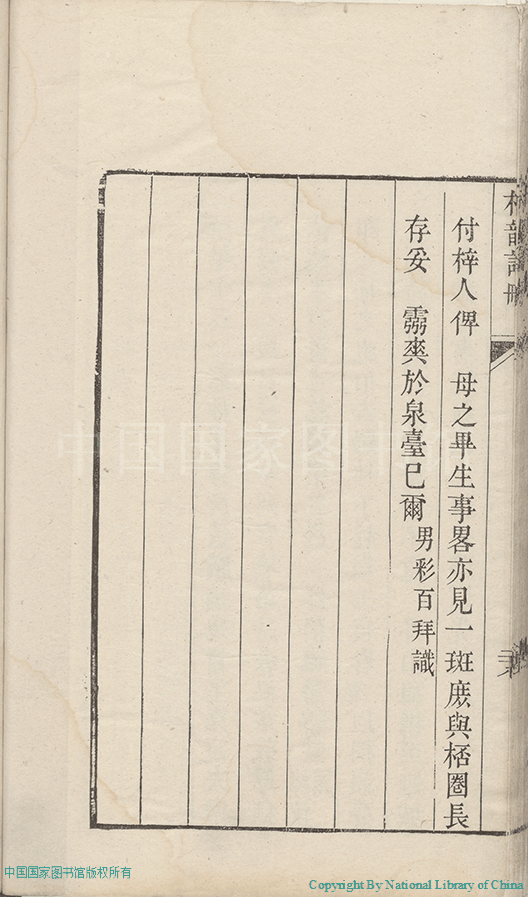 付梓人俾　母之畢生事畧亦見一斑庻與桮圈長
存妥　霛爽於泉臺巳爾男彩百拜識
韻詩
中国国家图书馆
中国国家图书馆版权所有
Copyright By National Library of China